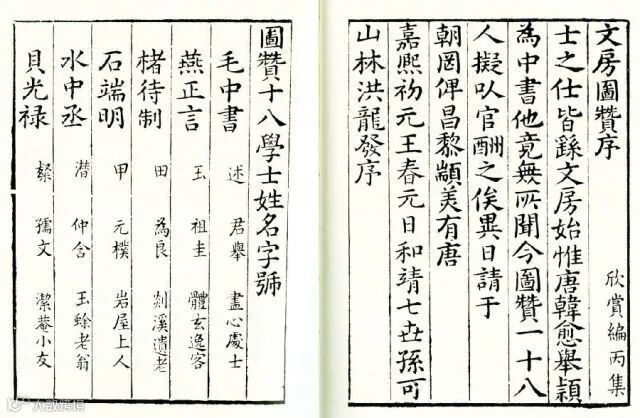 文房圖贊序
欣賞編丙集
士之仕皆繇文房始惟唐韓愈舉頴
為中書他竟無所聞今圖贊一十八
人擬以官酬之俟異日請于
朝罔俾昌黎顓美有唐
嘉熙初元王春元日和靖七世孫可
山林洪龍發序
圖贊十八學士姓名字號
毛中書 述 君舉 盡心處士
燕正言 玉 祖圭 體玄逸客
楮待制 田 為良 剡溪遺老
石端明 甲 元樸 岩屋上人
水中丞 潜 仲含 玉蜍老翁
貝光禄 粲 孺文 潔菴小友